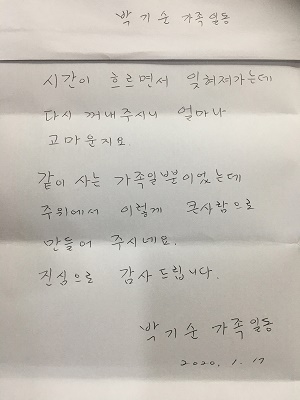 박기순 가족일동
시간이 흐르면서 잊혀져가는데
다시 꺼내주시니 얼마나
고마운지요
같이 사는 가족일부분이었는데
주위에서 이렇게 큰사람으로
만들어 주시네요.
진심으로 감사드립니다.
박기순 가족일동
2020. 1. 17